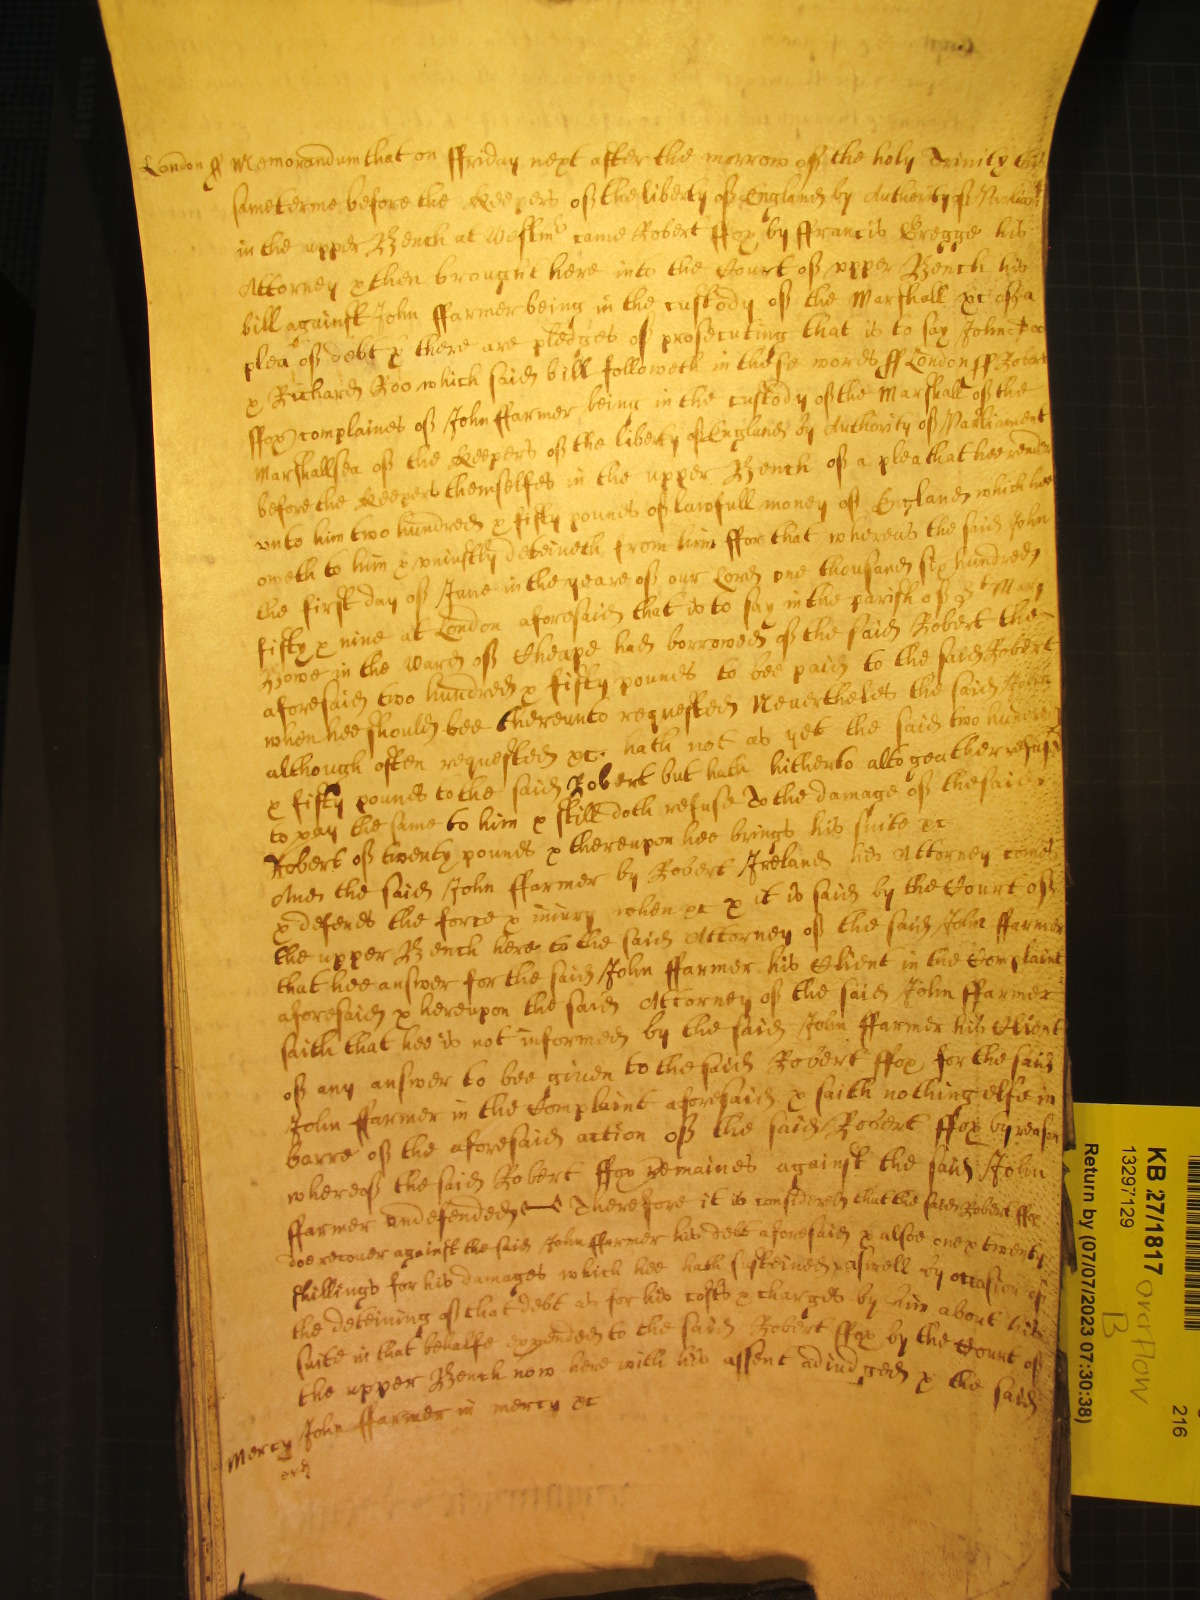 London ss Memorandum that on ffriday next after the morrow off the holy Trinity this
same terme before the Keepers off the liberty off England by Authority off Parliamt
in the upper Bench at Westmr came Robert ffox by ffrancis Gregge his
Attorney & then brought here into the Court off upper Bench his
bill against John ffarmer being in the custody off the Marshall &c off a
plea off debt & there are pledges off prosecuting that is to say John Doe
& Richard Roo which said bill followeth in these words ss London ss Robert
ffox complaines off John ffarmer being in the custody off the Marshall off the
Marshallsea off the Keepers off the liberty off England by Authority off Parliament
before the Keepers themselfes in the upper Bench off a plea that hee render
unto him two hundred & fifty pounds off lawfull money off England which hee
oweth to him & uniustly deteineth from him ffor that whereas the said John
the first day off June in the yeare off our Lord one thousand six hundred
fifty & nine at London aforesaid that is to say in the parish off St Mary
Bowe in the Ward off Cheape had borrowed off the said Robert the
aforesaid two hundred & fifty pounds to bee paid to the said Robert
when hee should bee thereunto requested Neverthelés the said John
although often requested &c. hath not as yet the said two hundred
& fifty pounds to the said Robert but hath hitherto altogeather refused
to pay the same to him & still doth refuse To the damage off the said
Robert off twenty pounds & thereupon hee brings his suite &c
And the said John ffarmer by Robert Ireland his Attorney comes
& defends the force & iniury when &c & it is said by the Court off
the upper Bench here to the said Attorney off the said John ffarmer
that hee answer for the said John ffarmer his Client in the Complaint
aforesaid & hereupon the said Attorney off the said John ffarmer
saith that hee is not informed by the said John ffarmer his Client
off any answer to bee given to the said Robert ffox for the said
John ffarmer in the Complaint aforesaid & saith nothing else in
barre off the aforesaid action off the said Robert ffox by reason
whereoff the said Robert ffox remaines against the said John
ffarmer undefended Therefore it is considered that the said Robert ffox
doe recouer against the said John ffarmer his debt aforesaid & alsoe one & twenty
shillings for his damages which hee hath susteined aswell by occasion off
the deteining off that debt as for his costs & charges by him about his
suite in that behalfe expended to the said Robert ffox by the Court off
the upper Bench now here with his assent adiudged & the said
Mercy John ffarmer in mercy &c
KB 27/1817
13297129
Return by (07/07/2023 07:30:38)
overflow
B
216